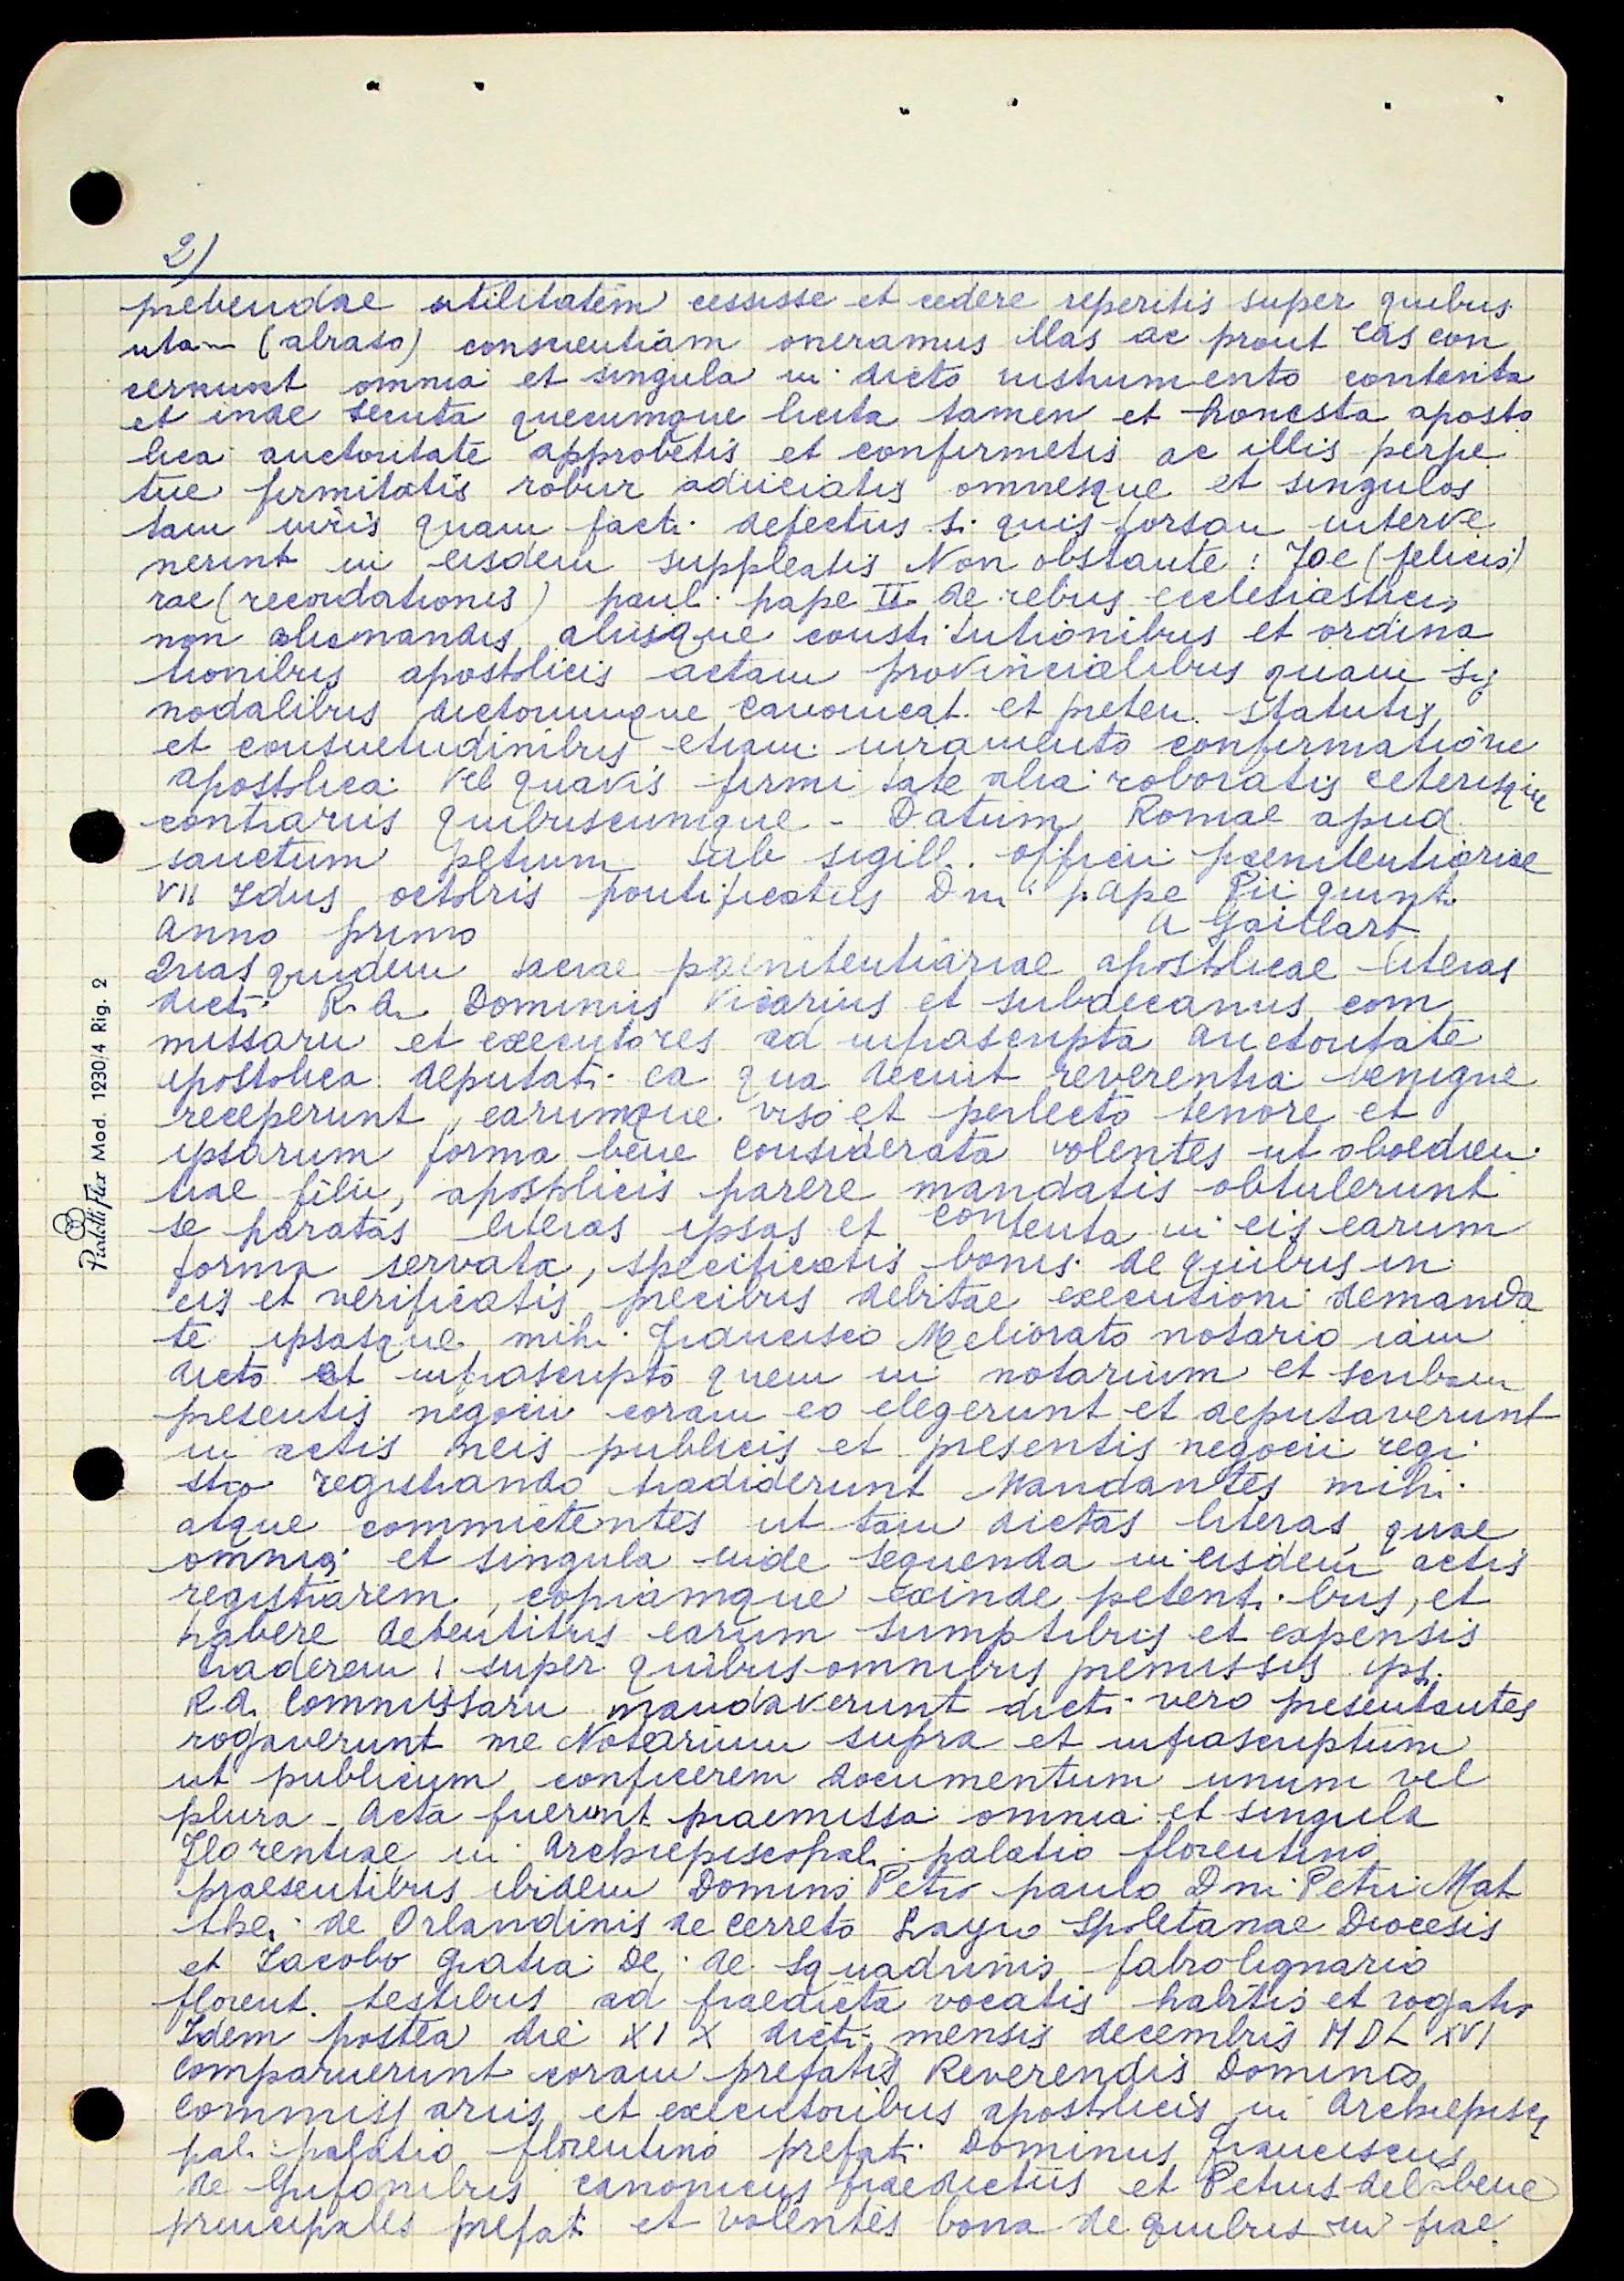 2)
prebendae utilitatem cessisse et cedere reperitis super quibus
utam (abraso) conscientiam oneramus illas ac prout eas con
cernunt omnia et singula in dicto instrumento contenta
et inde secuta quecumque licita tamen et honesta aposto
lica auctoritate approbetis et confirmetis ac illis perpe
tue firmitatis robur adiiciatis omnesque et singulos
tam iuris quam facti defectus si quis forsan interve
nerint in eisdem suppleatis Non obstante: Foe (felicis)
rae (recordationis) pauli pape II de rebus ecclesiasticis
non alienandis aliisque constitutionibus et ordina
tionibus apostolicis actam provincialibus quam sy
nodalibus dictorumque canonicat. et preben. statutis
et consuetudinibus etiam iuramento confirmatione
apostolica vel quavis firmitate alia roboratis ceterisque
contrariis quibuscumque - Datum Romae apud
sanctum petrum sub sigill. officii paenitentiariae
VII Idus octobris pontificatus Dni pape Pii quinti
anno primo A Gaillart
Quas quidem sacrae paenitentiariae apostolicae literas
dicti R. di Dominus Vicarius et subdecanus com
missarii et executores ad infrascripta auctoritate
apostolica deputati ea qua decuit reverentia benigne
receperunt, earumque viso et perlecto tenore et
ipsarum forma bene considerata volentes ut oboedien
tiae filii, apostolicis parere mandatis obtulerunt
se paratas literas ipsas et contenta in eis earum
forma servata, specificatis bonis de quibus in
eis et verificatis precibus debitae executioni demanda
te ipsasque mihi Francisco Meliorato notario iam
dicto et infrascripto quem in notarium et scribam
presentis negocii coram eo elegerunt et deputaverunt
in actis meis publicis et presentis negocii regi
stro registrando tradiderunt Mandantes mihi
atque commictentes ut tam dictas literas quae
omnia et singula inde sequenda in eisdem actis
registrarem, copiamque exinde petentibus, et
habere debentibus earum sumptibus et expensis
traderem, super quibus omnibus premissis ips.
R. di Commissarii mandaverunt dicti vero presentantes
rogaverunt me Notarium supra et infrascriptum
ut publicum conficerem documentum unum vel
plura - Acta fuerunt praemissa omnia et singula
Florentiae in Archiepiscopali palatio florentino
praesentibus ibidem Domino Petro paulo Dni Petri Mat
thei de Orlandinis de Cerreto Spoletanae Diocesis
et Iacobo gratia Dei de Squadrinis fabrolignario
florent. testibus ad praedicta vocatis habitis et rogatis
Idem postea die XIX dicti mensis decembris MDLXVI
comparuerunt coram prefatis Reverendis Dominis
commissariis et executoribus apostolicis in Archiepisco
pali palatio florentino prefati Dominus Franciscus
de canonicus praedictus et Petrus del bene
principales prefati et volentes bona de quibus in prae
Pratelli Flex Mod. 1230/4 Rig. 2